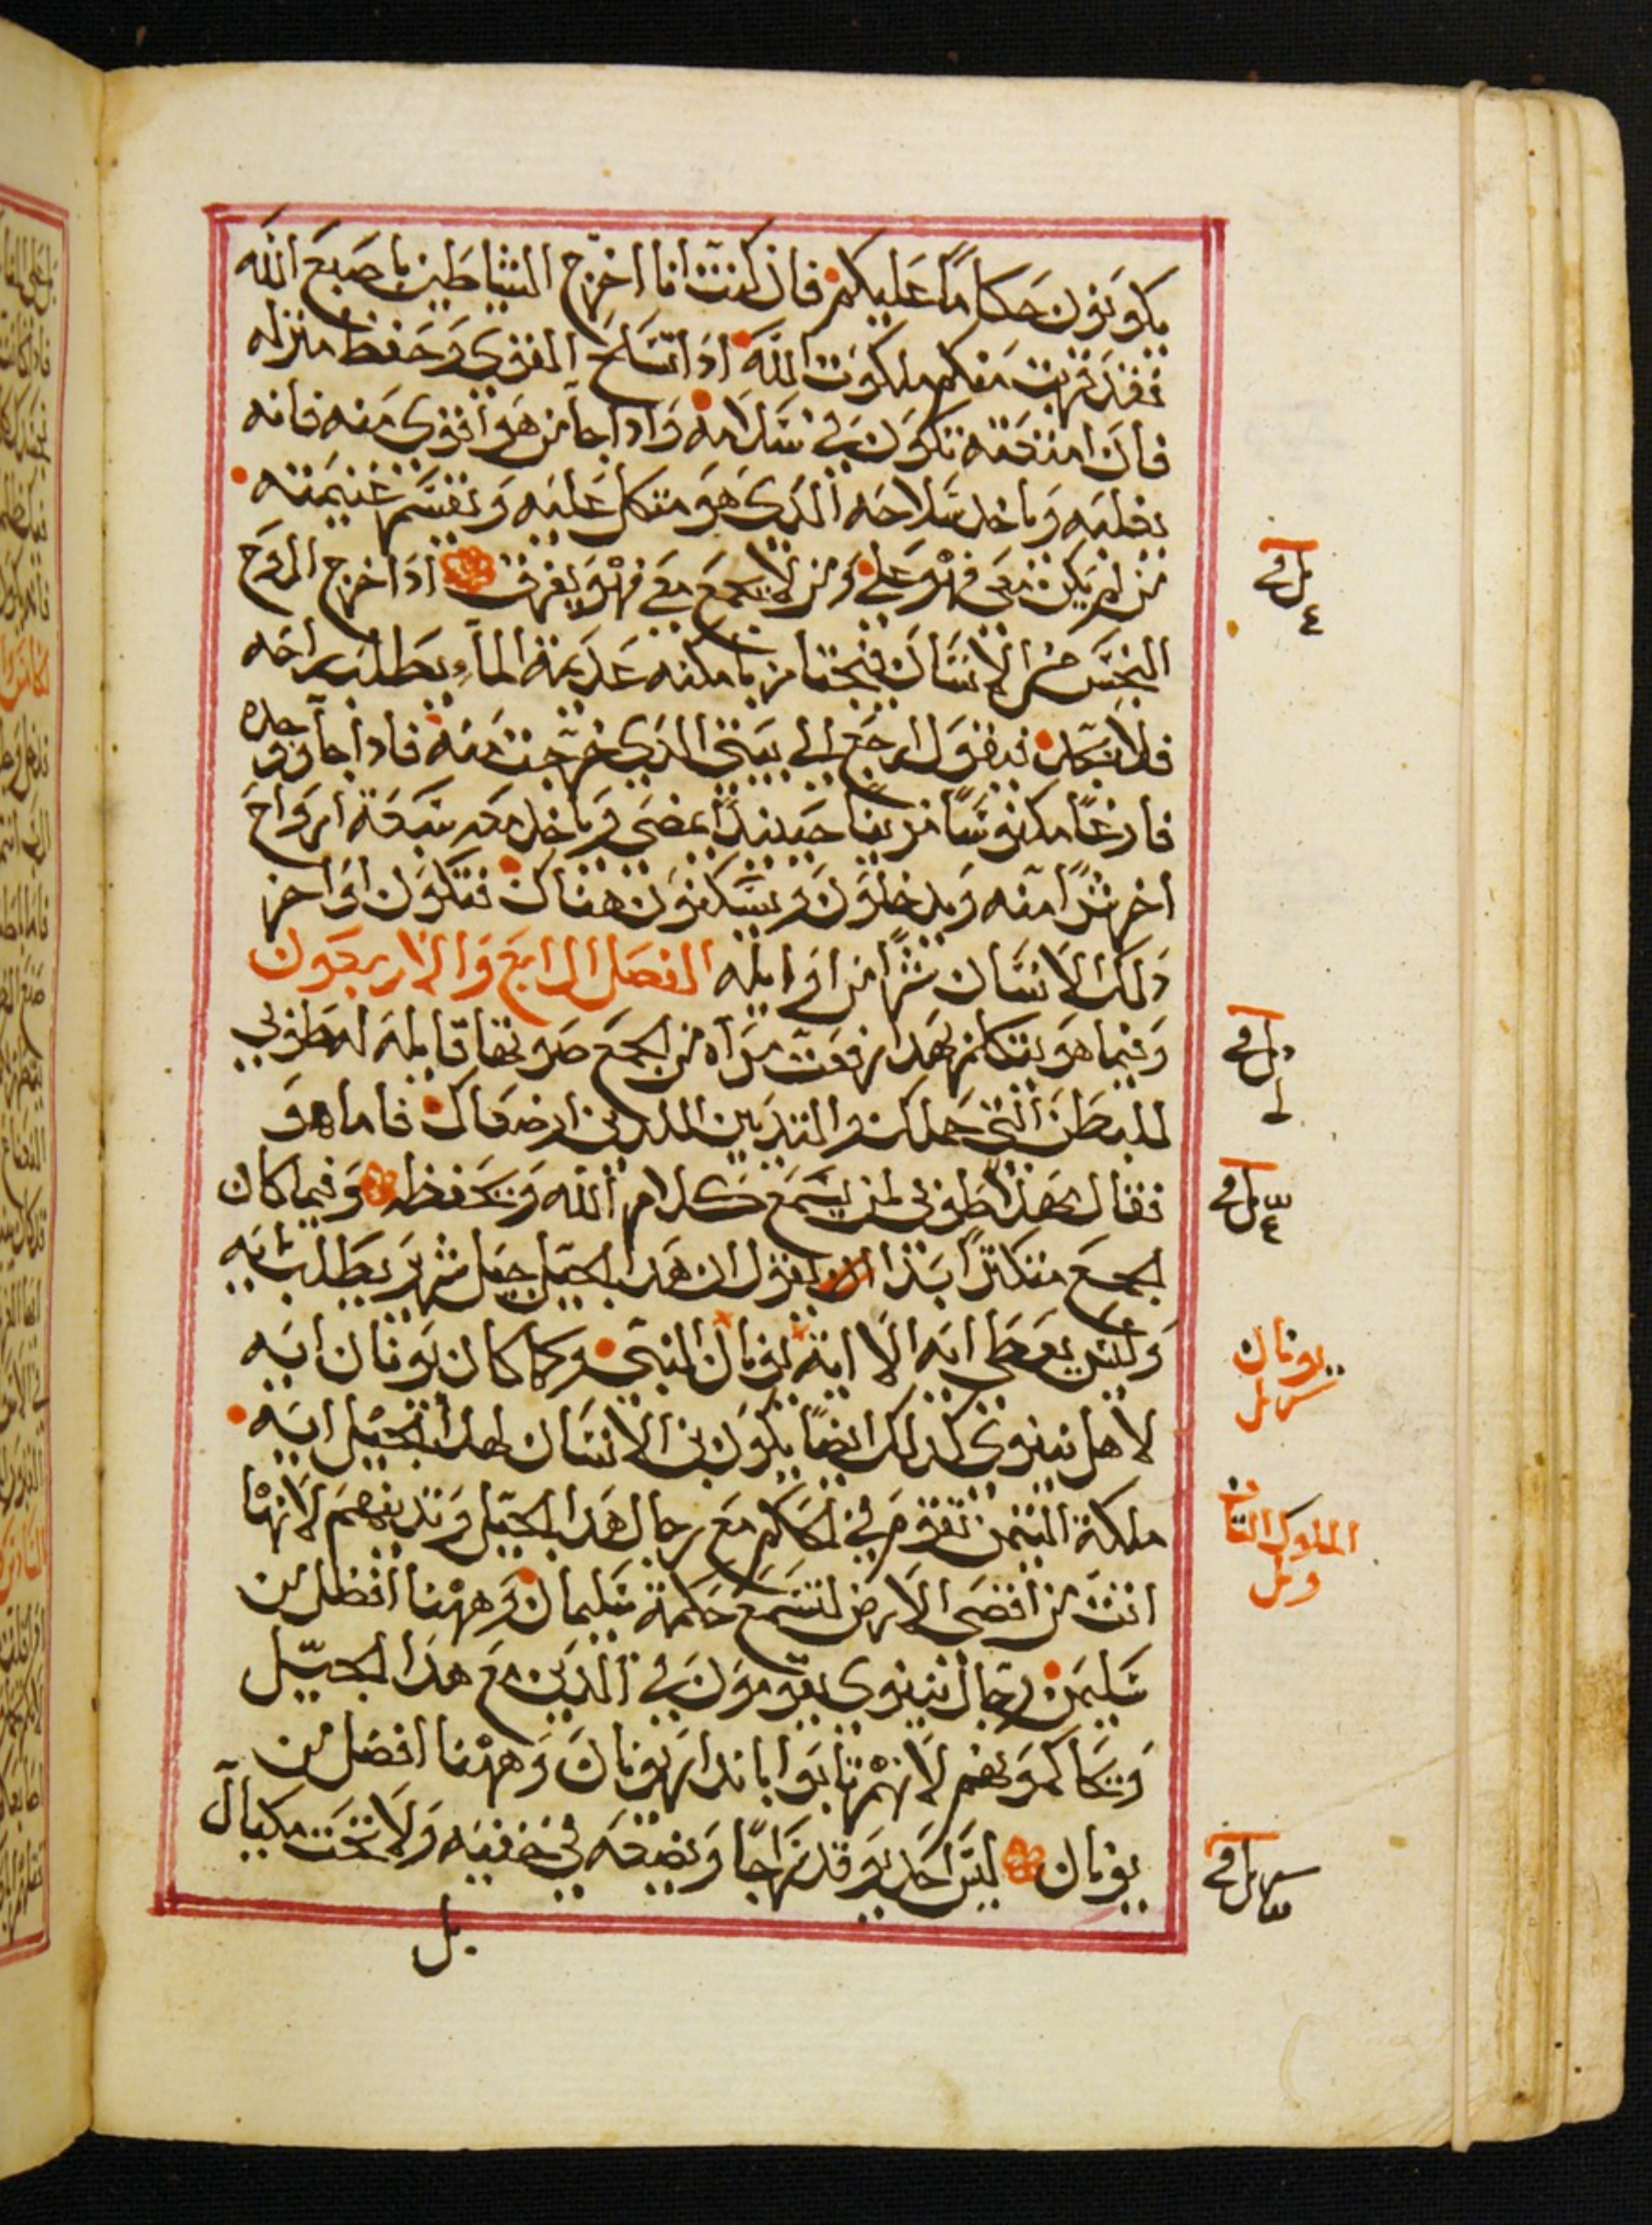 يكونون حكاما عليكم فان كنت انا اخرج الشياطين باصبع الله
فقد قربت منكم ملكوت الله اذا تسلح القوي وحفظ منزله
فان امتعته تكون في سلامه واذا جا من هو اقوى منه فانه
يغلبه وياخد سلاحه الدي هو متكل عليه ويقسم غنيمته
من لم يكن معي فهو علي ومن لا يجمع معي فهو يفرق اذا خرج الروح
النجس من الانسان فيجتاز بامكنه عديمة الماء يطلب راحه
فلا يجد فيقول ارجع الي بيتي الدي خرجت منه فادا جا ووجده
فارغا مكنوسا مزينا حينيدا يمضي وياخد معه سبعة ارواح
اخر شرا منه ويدخلون ويسكنون هناك فتكون اواخر
دلك الانسان شرا من اوايله الفصل الرابع والاربعون
وفيما هو يتكلم بهدا رفعت مراه من الجمع صوتها قايله له طوبي
للبطن التي حملك والتديين اللدين ارضعاك فاما هو
فقال لها طوبي لمن يسمع كلام الله ويحفظه وفيما كان
الجمع متكترا بدا يقول ان هدا الجيل جيل شرير يطلب ايه
وليس يعطي ايه الا اية يونان النبي وكما كان يونان ايه
لاهل نينوي كدلك ايضا يكون بن الانسان لهدا الجيل ايه
ملكة التيمن تقوم في الحكم مع رجال هدا الجيل وتدينهم لانها
اتت من اقصي الارض لتسمع حكمة سليمان وههنا افضل من
سليمن رجال نينوي يقومون في الدين مع هدا الجيل
ويحاكمونهم لانهم تابوا باندار يونان وههنا افضل من
يونان ليس احد يوقد سراجا ويضعه في خفيه ولا تحت مكيال
بل
يونان